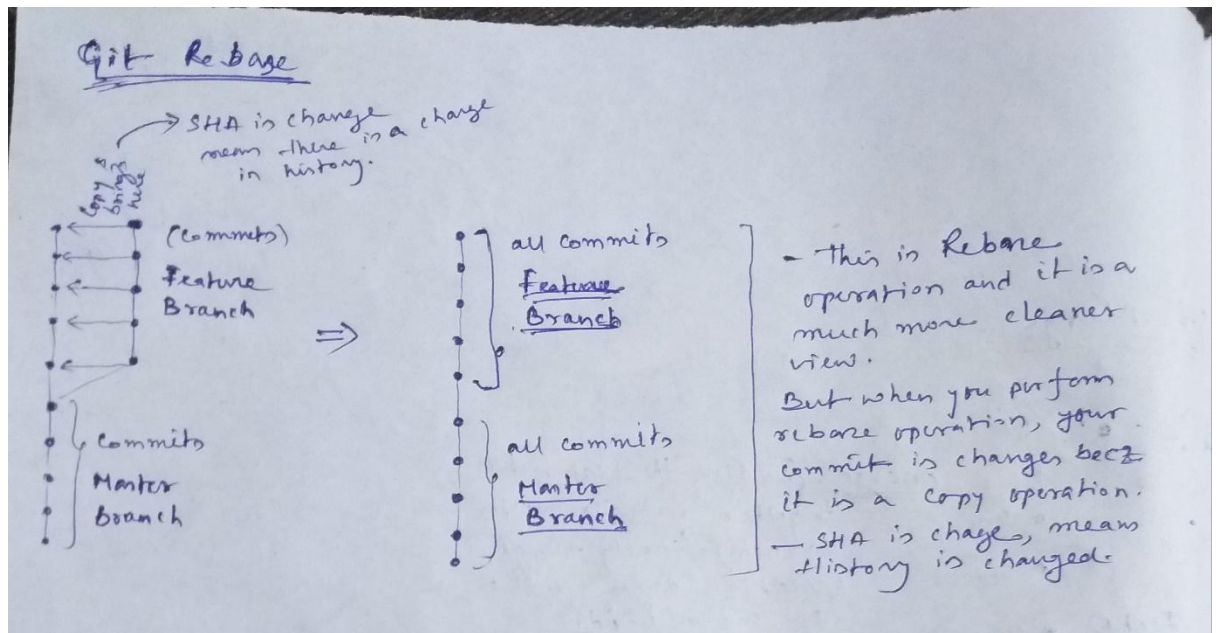 Git Rebase
SHA is change
mean there is a change
in history.
Copy &
brings
here
(Commits)
Feature
Branch
Commits
Master
branch
⇒
all commits
Feature
Branch
all commits
Master
Branch
- This is Rebase
operation and it is a
much more cleaner
view.
But when you perform
rebase operation, your
commit is changes becz
it is a copy operation.
- SHA is chages, means
History is changed.